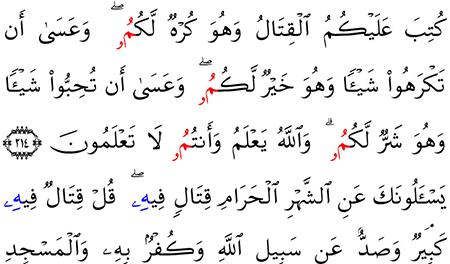 كُتِبَ عَلَيْكُمُ اُ۬لْقِتَالُ وَهُوَ كُرْهٞ لَّكُمُۥ وَعَسَىٰ أَن
تَكْرَهُواْ شَيْـٔٗا وَهُوَ خَيْرٞ لَّكُمُۥ وَعَسَىٰ أَن تُحِبُّواْ شَيْـٔٗا
وَهُوَ شَرّٞ لَّكُمُۥ وَاللَّهُ يَعْلَمُ وَأَنتُمُۥ لَا تَعْلَمُونَ ٢١٤
يَسْـَٔلُونَكَ عَنِ اِ۬لشَّهْرِ اِ۬لْحَرَامِ قِتَالٖ فِيهِۦ قُلْ قِتَالٞ فِيهِۦ
كَبِيرٞ وَصَدٌّ عَن سَبِيلِ اللَّهِ وَكُفْرُۢ بِهِۦ وَالْمَسْجِدِ